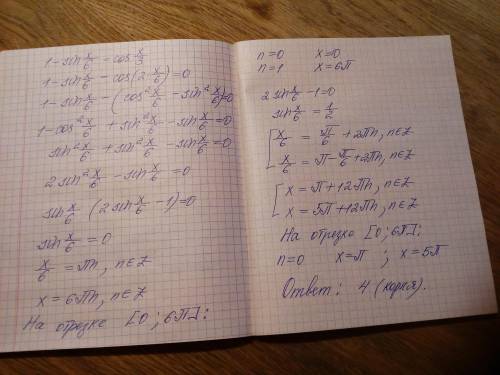 1 - sin x/6 - cos x/3
1 - sin x/6 - cos(2·x/6) = 0
1 - sin x/6 - (cos² x/6 - sin² x/6) = 0
1 - cos² x/6 + sin² x/6 - sin x/6 = 0
sin² x/6 + sin² x/6 - sin x/6 = 0
2 sin² x/6 - sin x/6 = 0
sin x/6 (2 sin x/6 - 1) = 0
sin x/6 = 0
x/6 = πn, n∈Z
x = 6πn, n∈Z
На отрезке [0; 6π]:
n=0 x=0
n=1 x=6π
2 sin x/6 - 1 = 0
sin x/6 = 1/2
[ x/6 = π/6 + 2πn, n∈Z
x/6 = π - π/6 + 2πn, n∈Z
[ x = π + 12πn, n∈Z
x = 5π + 12πn, n∈Z
На отрезке [0; 6π]:
n=0 x=π ; x=5π
Ответ: 4 (корня).